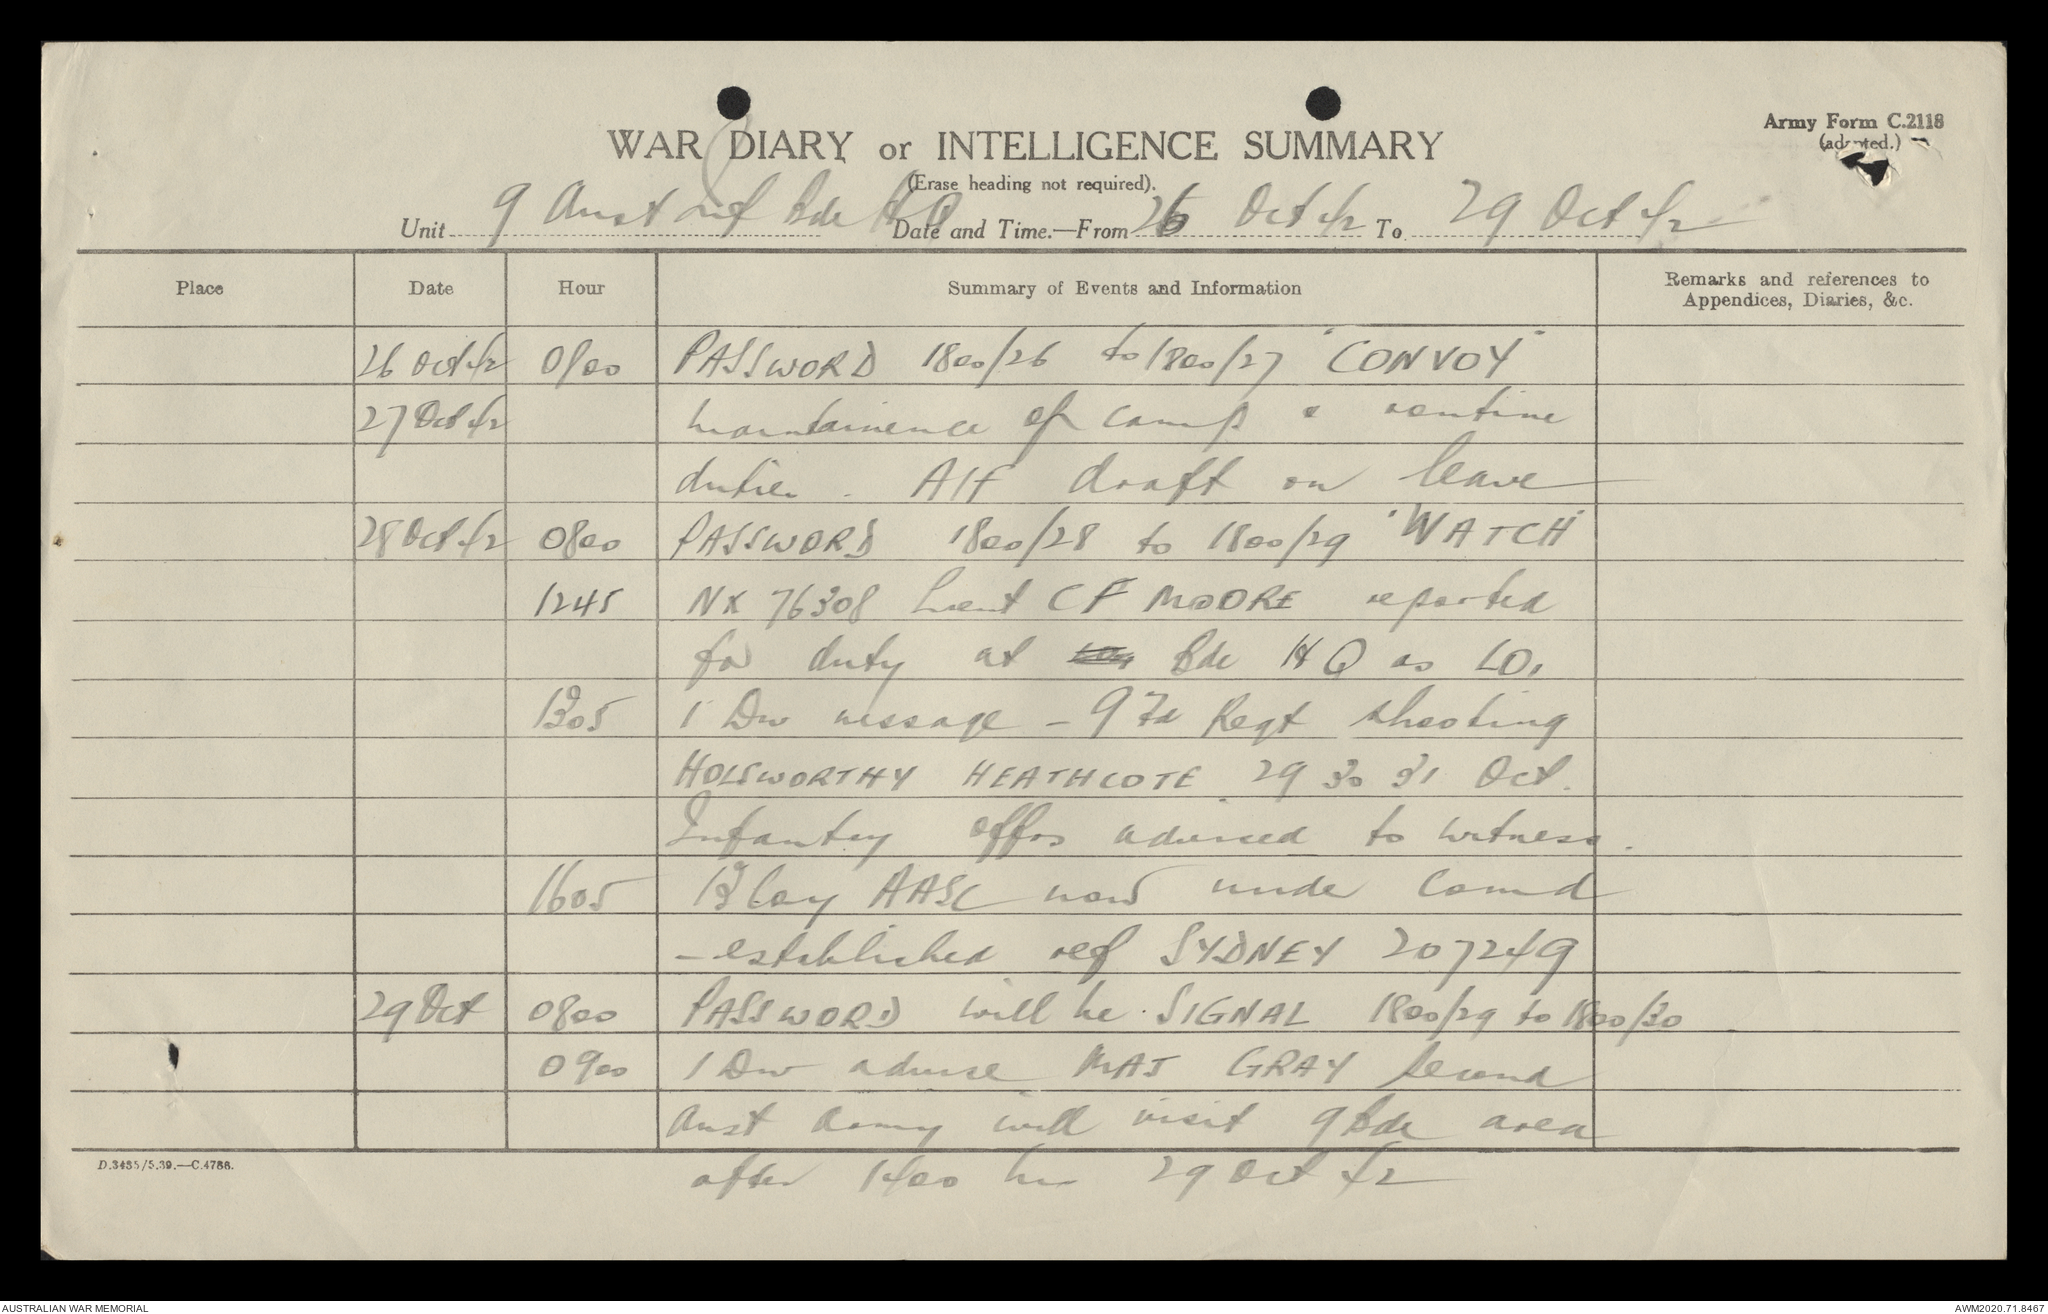 Army Form C.2118
(adapted.)
WAR DIARY or INTELLIGENCE SUMMARY
(Erase heading not required).
Unit 9 Aust Inf Bde HQ Date and Time.—From 26 Oct 42 To 29 Oct 42
Place Date Hour Summary of Events and Information Remarks and references to Appendices, Diaries, &c.
26 Oct 42 0800 PASSWORD 1800/26 to 1800/27 "CONVOY"
27 Oct 42 maintainence of camp & routine
duties. AIF draft on leave
28 Oct 42 0800 PASSWORD 1800/28 to 1800/29 "WATCH"
1245 NX 76308 Lieut CF MOORE reported
for duty at Bde HQ as LO.
1305 1 Div message - 9 Fd Regt shooting
HOLSWORTHY HEATHCOTE 29 30 31 Oct.
Infantry offrs advised to witness.
1605 13 Coy AASC now under Comd
- established ref SYDNEY 207249
29 Oct 0800 PASSWORD will be SIGNAL 1800/29 to 1800/30
0900 1 Div advise MAJ GRAY Second
Aust Army will visit 9 Bde area
after 1400 hrs 29 Oct 42
D.3435/5.39.—C.4786.
AUSTRALIAN WAR MEMORIAL
AWM2020.71.8467